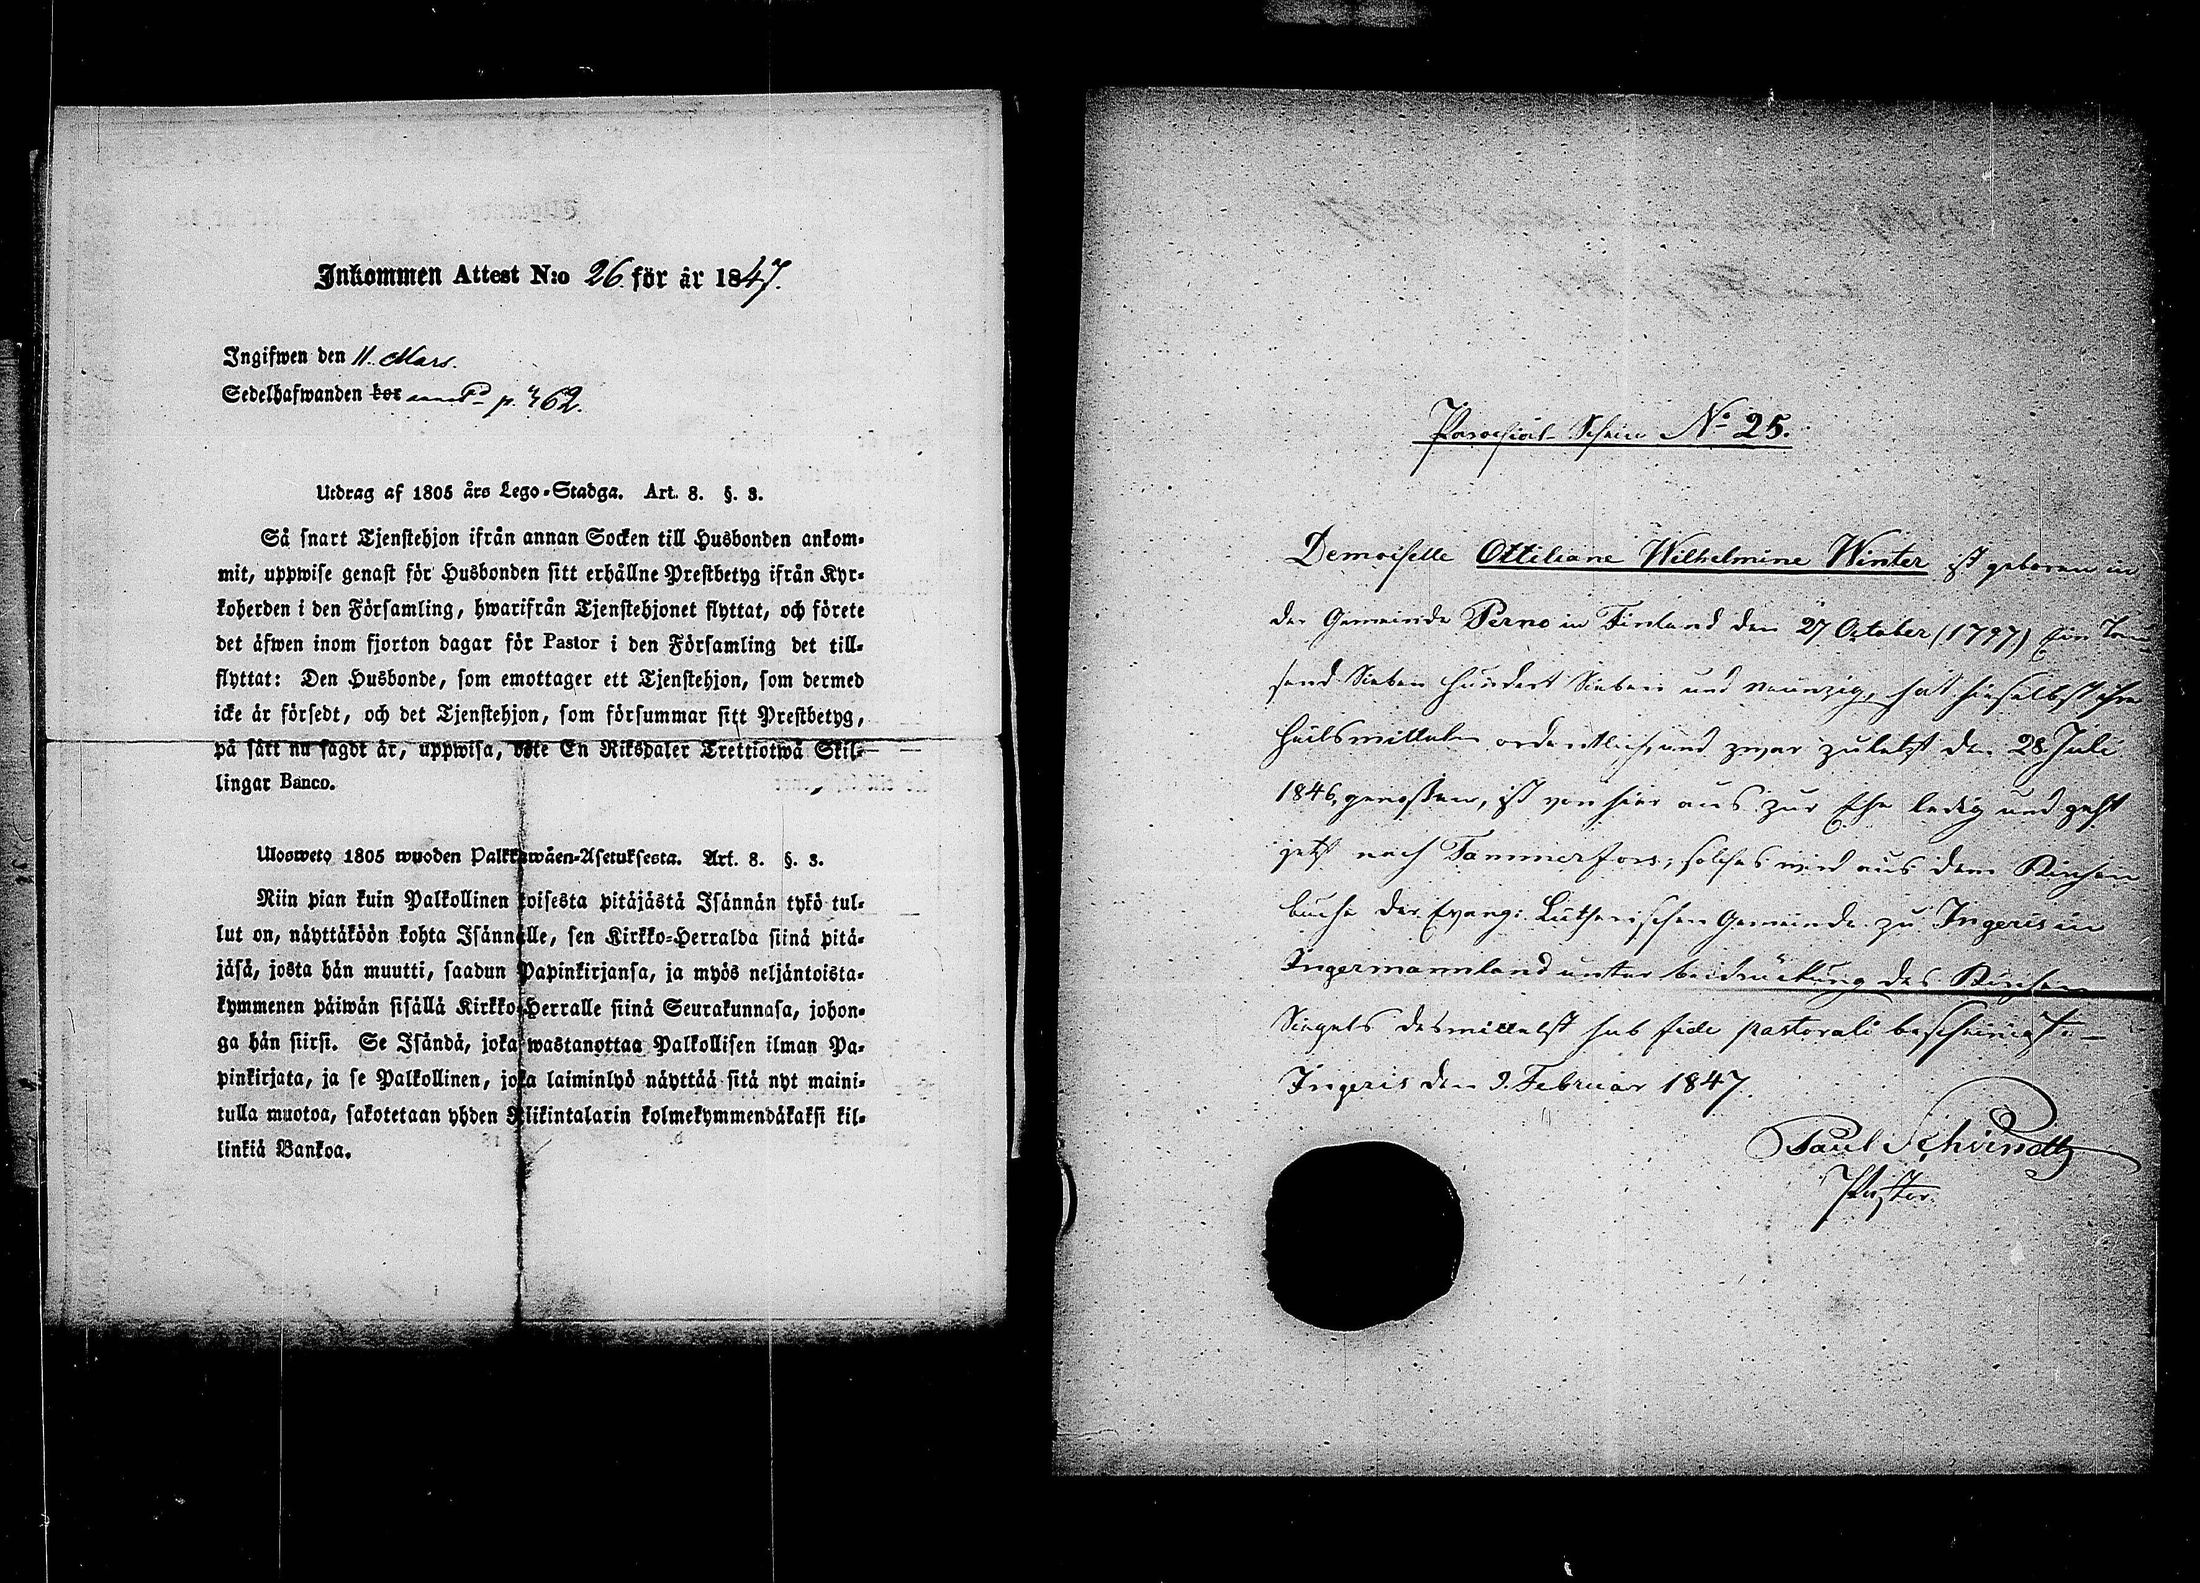 Inkommen Attest N:o 26. för år 1847.
Ingifwen den 11. Mars.
Sedelhafwanden bor p. 362.
Utdrag af 1805 års Lego-Stadga. Art. 8. §. 3.
Så snart Tjenstehjon ifrån annan Socken till Husbonden ankom-
mit, uppwise genast för Husbonden sitt erhållne Prestbetyg ifrån Kyr-
koherden i den Församling, hwarifrån Tjenstehjonet flyttat, och förete
det äfwen inom fjorton dagar för Pastor i den Församling det till-
flyttat: Den Husbonde, som emottager ett Tjenstehjon, som dermed
icke är försedt, och det Tjenstehjon, som försummar sitt Prestbetyg,
på sätt nu sagdt är, uppwisa, böte En Riksdaler Trettiotwå Skil-
lingar Banco.
Ulosweto 1805 wuoden Palkkawäen-Asetuksesta. Art. 8. §. 3.
Niin pian kuin Palkollinen toisesta pitäjästä Isännän tykö tul-
lut on, näyttäköön kohta Isännälle, sen Kirkko-Herralda siinä pitä-
jäsä, josta hän muutti, saadun Papinkirjansa, ja myös neljäntoista-
kymmenen päiwän sisällä Kirkko-Herralle siinä Seurakunnasa, johon-
ga hän siirsi. Se Isändä, joka wastanottaa Palkollisen ilman Pa-
pinkirjata, ja se Palkollinen, joka laiminlyö näyttää sitä nyt maini-
tulla muotoa, sakotetaan yhden Riikintalarin kolmekymmendäkaksi kil-
linkiä Bankoa.
Parochial-Schein No 25.
Demoiselle Ottiliane Wilhelmine Winter ist geboren in
der Gemeinde Perno in Finland den 27 October (1797) Ein Tau-
send Sieben Hundert Sieben und Neunzig, hat hieselbst ihre
Heilsmitteln ordentlich, und zwar zuletzt den 28. Juli
1846, genoßen, ist von hier aus zur Ehe ledig und geht
jetzt nach Tammerfors; solches wird aus dem Kirchen
buche der Evang: Lutherischen Gemeinde zu Ingeris in
Ingermannland unter beidrückung des Kirchen
Siegels desmittelst sub fide pastorali bescheinigt.–
Ingeris den 9. Februar 1847.
Paul Schvindtz
Pastor.